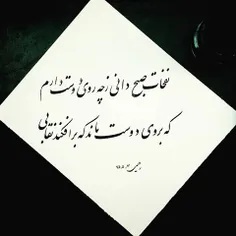 نفحات صبح دانی ز چه روی دوست دارم
که بروی دوست ماند که برافکند نقابی